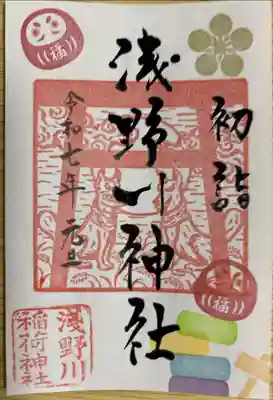 初詣
浅野川神社
令和七年 元旦
((福))
((福))
淺野川
稲荷神社